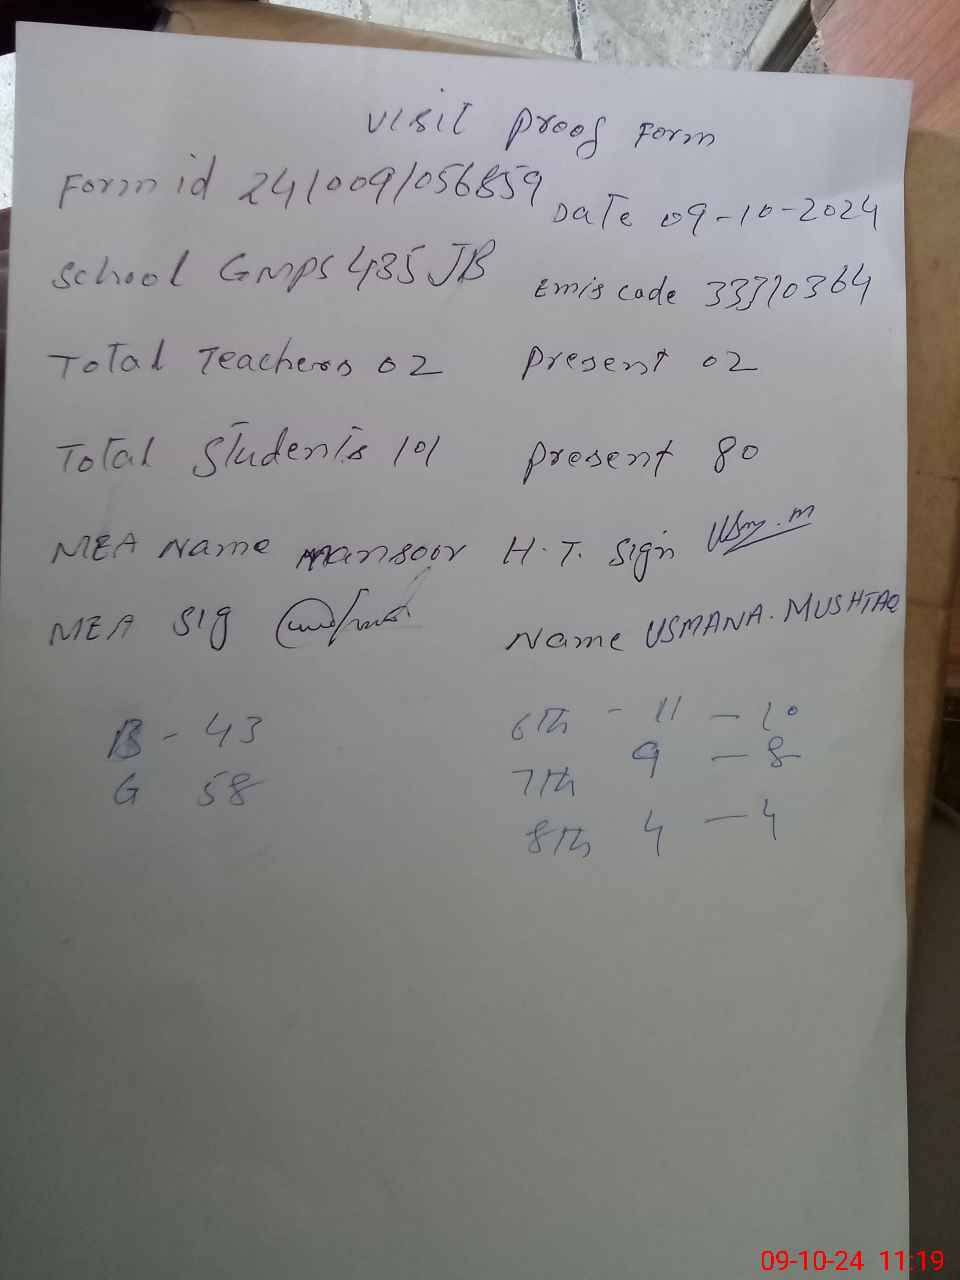 Visit Proof Form
Form id 241009/056859 Date 09-10-2024
School GMPS 435 JB Emis code 33310364
Total Teachers 02 Present 02
Total Students 101 Present 80
MEA Name Mansoor H.T. Sign
MEA Sig Name USMANA. MUSHTAQ
B - 43 6th - 11 - 10
G 58 7th 9 - 8
8th 4 - 4
09-10-24 11:19